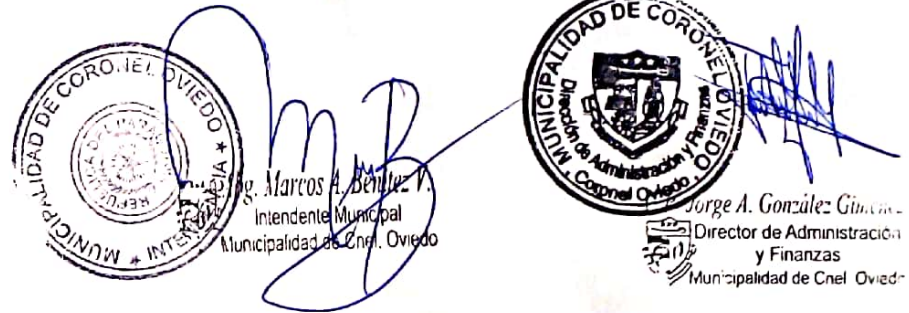 MUNICIPALIDAD DE CORONEL OVIEDO
INTENDENCIA
REPUBLICA DEL PARAGUAY
Ing. Marcos A. Benítez V.
Intendente Municipal
Municipalidad de Cnel. Oviedo
MUNICIPALIDAD DE CORONEL OVIEDO
Dirección de Administración y Finanzas
Coronel Oviedo
Jorge A. González
Director de Administración
y Finanzas
Municipalidad de Cnel Oviedo